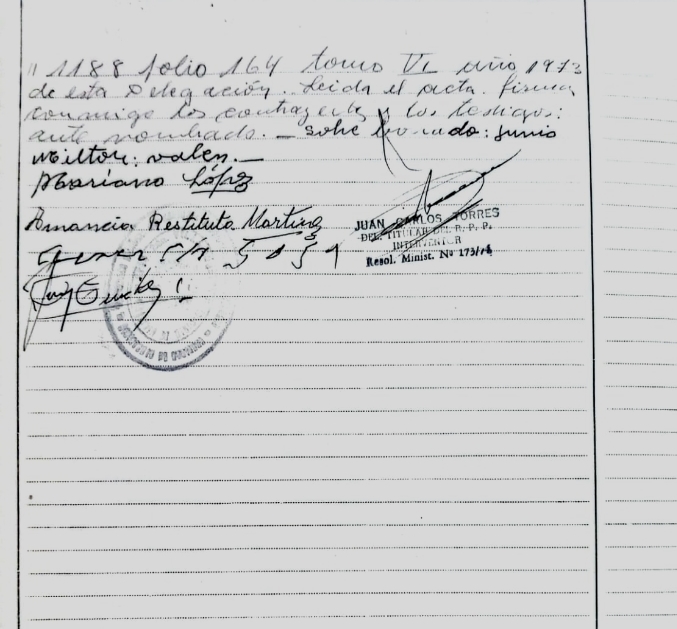 " 1188 folio 164 tomo VI año 1973
de esta Delegación. Leida el acta. firman
conmigo los contrayentes y los testigos:
ante nombrado. — sobre borrado: junio
Milton: valen. —
Mariano López
Amancia Restituta Martinez
JUAN CARLOS TORRES
DEL. TITULAR DEL R. P. P.
INTERVENTOR
Resol. Minist. Nº 173/74